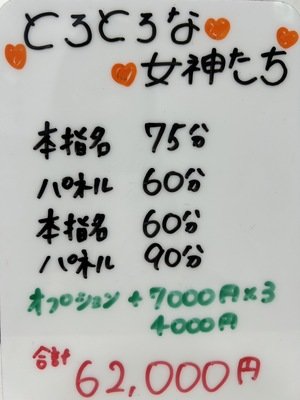 とろとろな
女神たち
本指名 75分
パネル 60分
本指名 60分
パネル 90分
オプション + 7000円×3
4000円
合計 62,000円